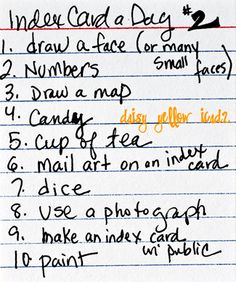 Index Card a Day #2
1. draw a face (or many
small faces)
2. Numbers
3. Draw a map
4. Candy
daisy yellow icad2
5. Cup of tea
6. Mail art on on index
card
7. dice
8. use a photograph
9. make an index card
w/ public
10. paint